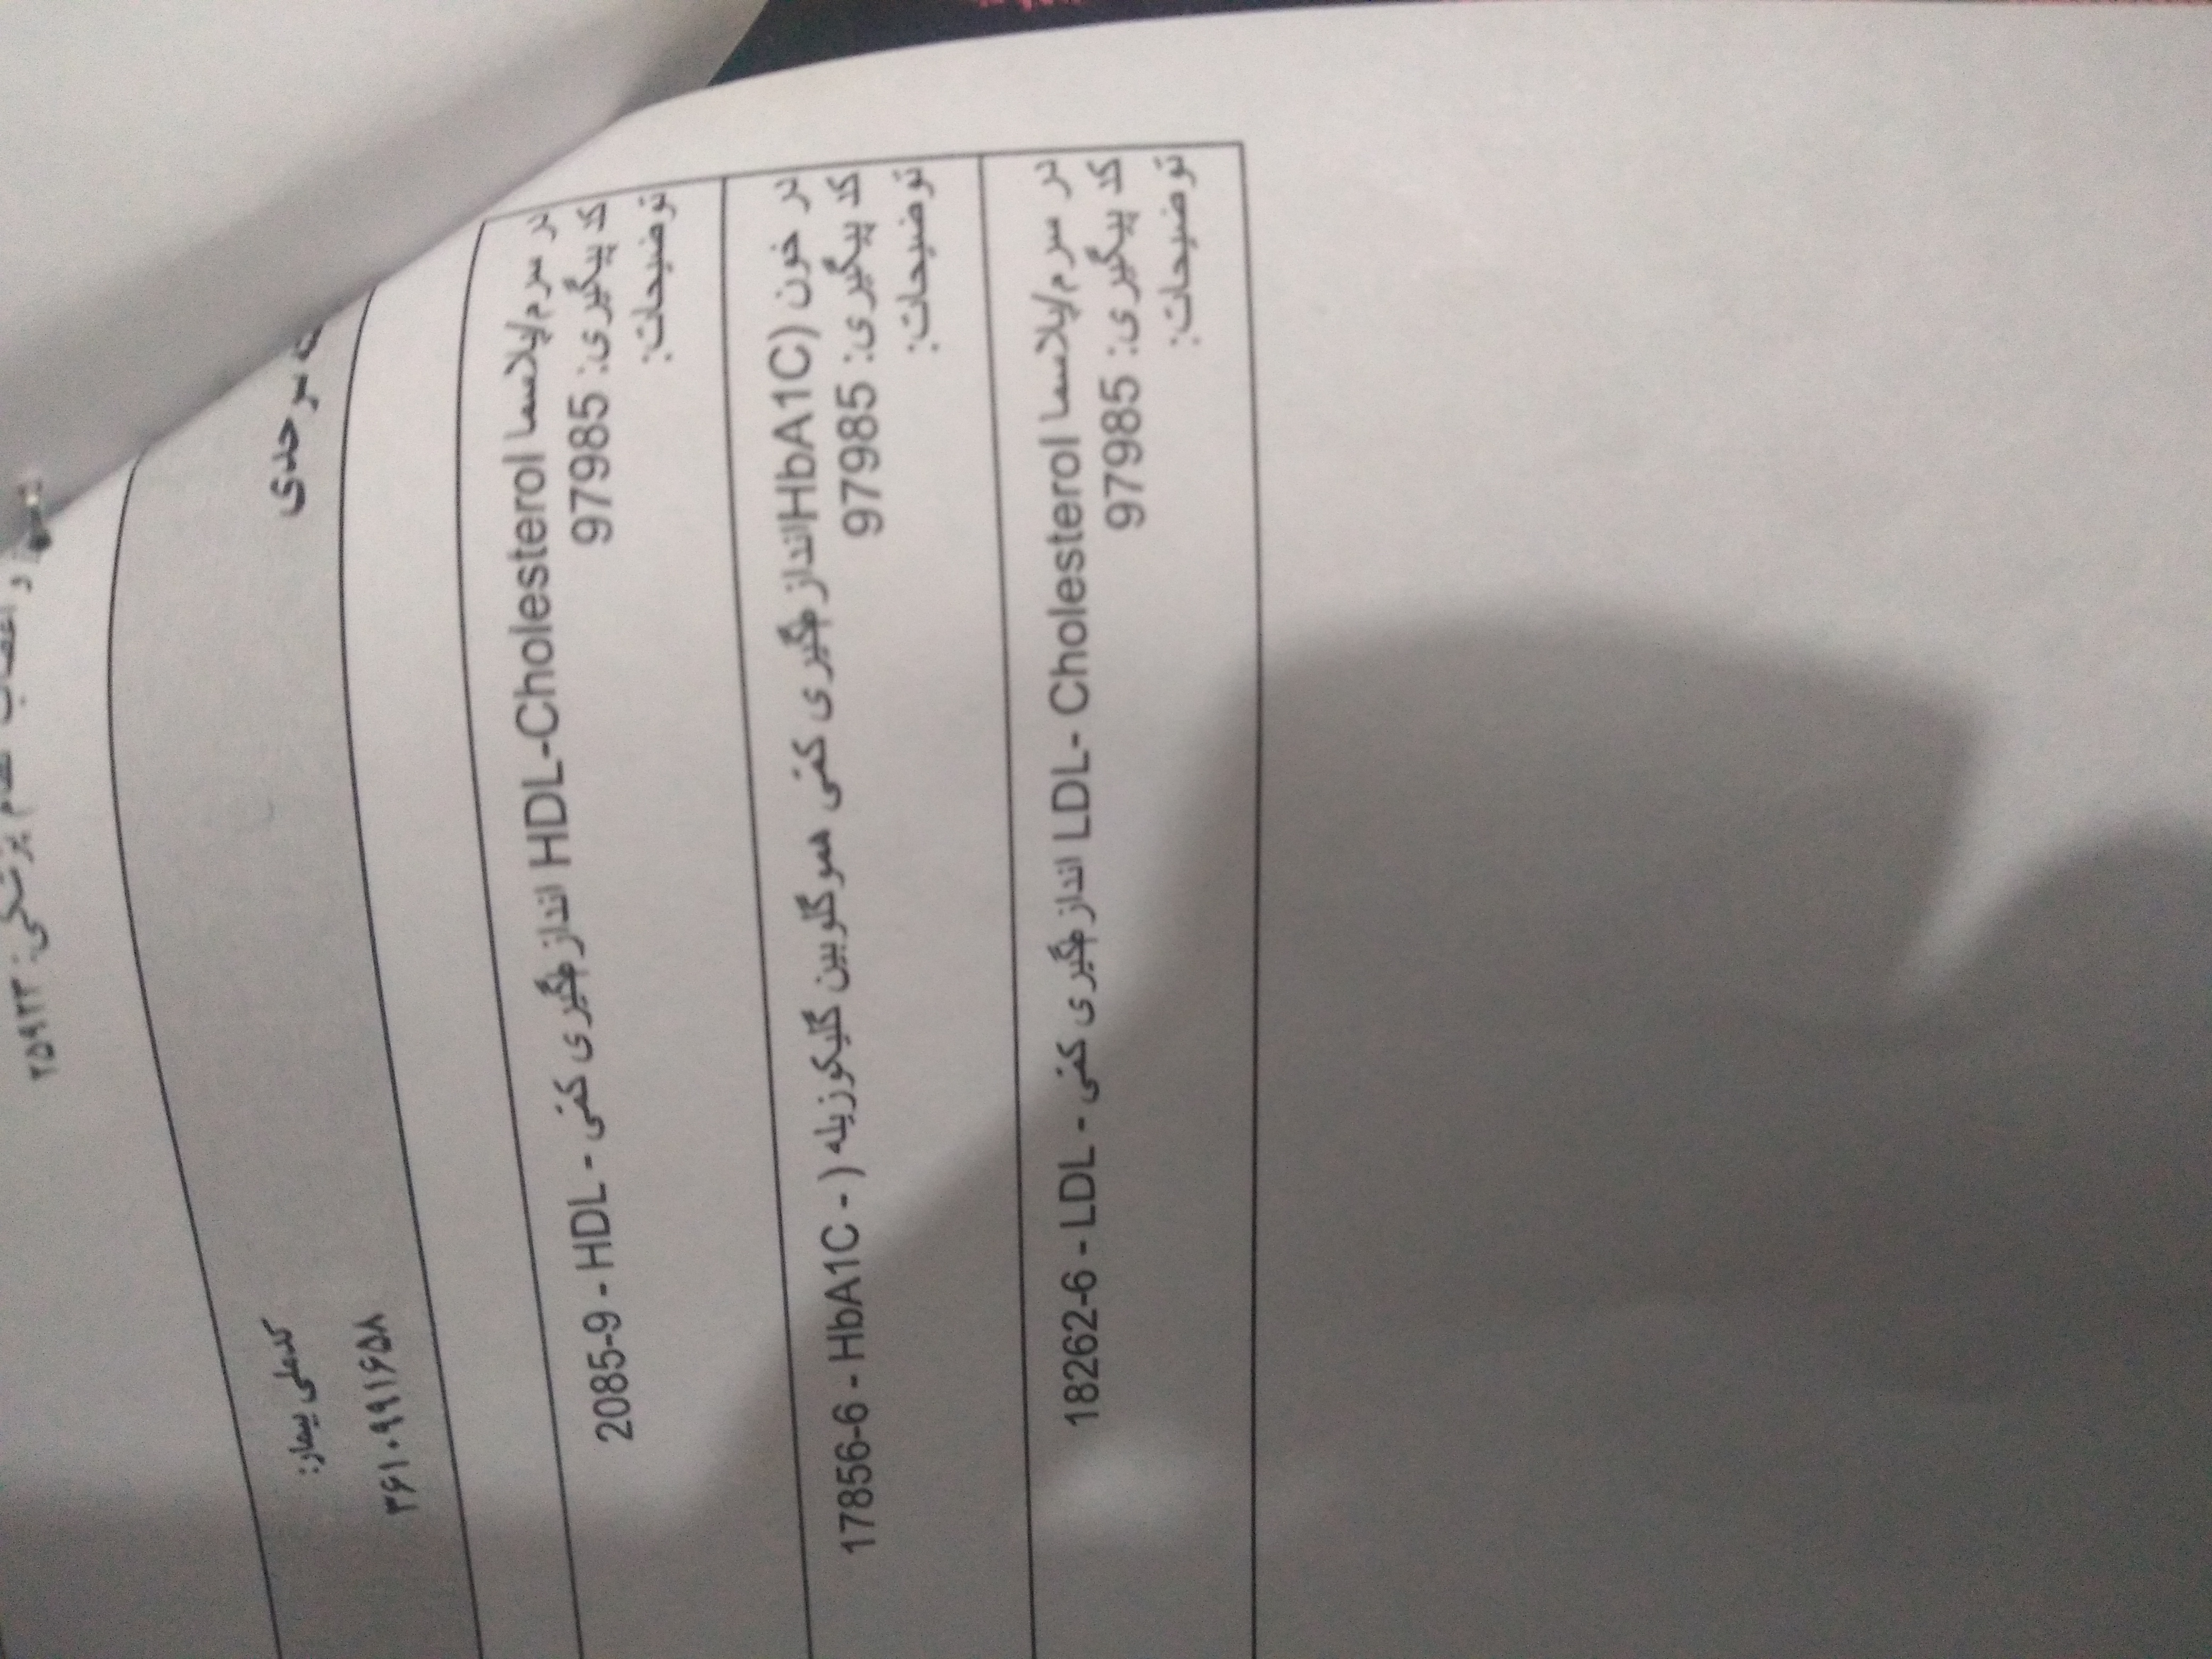 نظام پزشکی: ۲۵۹۲۳
سرحدی
کدملی بیمار:
۳۶۱۰۹۹۱۶۵۸
2085-9 - HDL - اندازهگیری کمّی HDL-Cholesterol در سرم/پلاسما
کد پیگیری: 97985
توضیحات:
17856-6 - HbA1C - اندازهگیری کمّی هموگلوبین گلیکوزیله (HbA1C) در خون
کد پیگیری: 97985
توضیحات:
18262-6 - LDL - اندازهگیری کمّی LDL- Cholesterol در سرم/پلاسما
کد پیگیری: 97985
توضیحات: